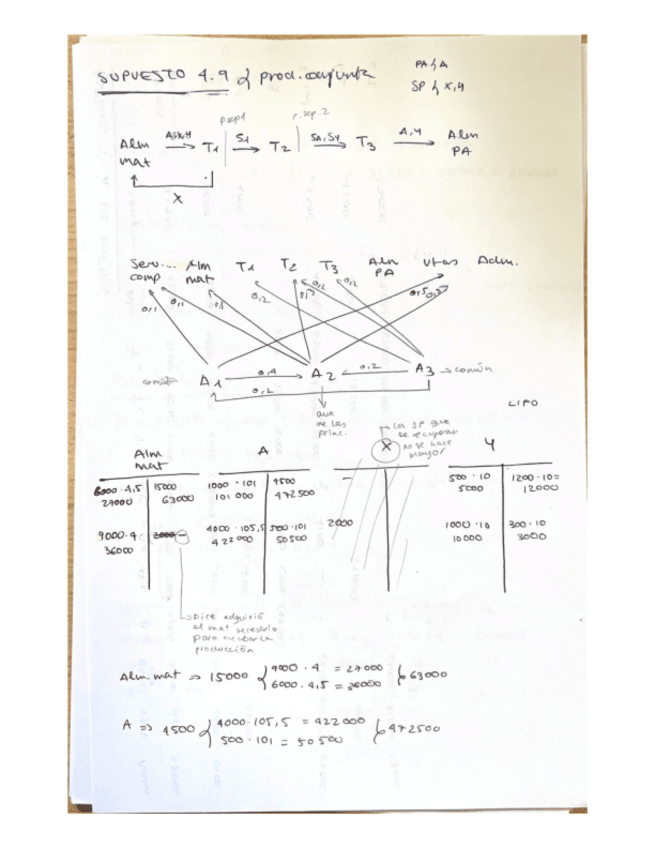 SUPUESTO 4.9 { prod. conjunta
PA { A
SP { X, Y
p sep 1
p. sep. 2
Alm mat
T1
S1
T2
SA, SY
T3
A, Y
Alm PA
X
Serv... comp
Alm mat
T1
T2
T3
Alm PA
Vtas
Adm.
0,1
0,1
0,2
0,2
0,2
0,5
A1
0,4
A2
0,2
A3 → común
0,2
aux de las princ.
LIFO
Los SP que se recuperan no se hace mayor
Alm mat
A
X
Y
6000 · 4,5
27000
15000
63000
1000 · 101
101 000
4500
472 500
500 · 10
5000
1200 · 10 =
12000
9000 · 4
36000
4000 · 105,5
422 000
500 · 101
50 500
2000
1000 · 10
10 000
300 · 10
3000
Dice adquirió
el mat necesario
para ejecutar la
producción
Alm. mat ⇒ 15000 { 9000 · 4 = 27000
6000 · 4,5 = 36000 } 63000
A ⇒ 4500 { 4000 · 105,5 = 422 000
500 · 101 = 50 500 } 472500